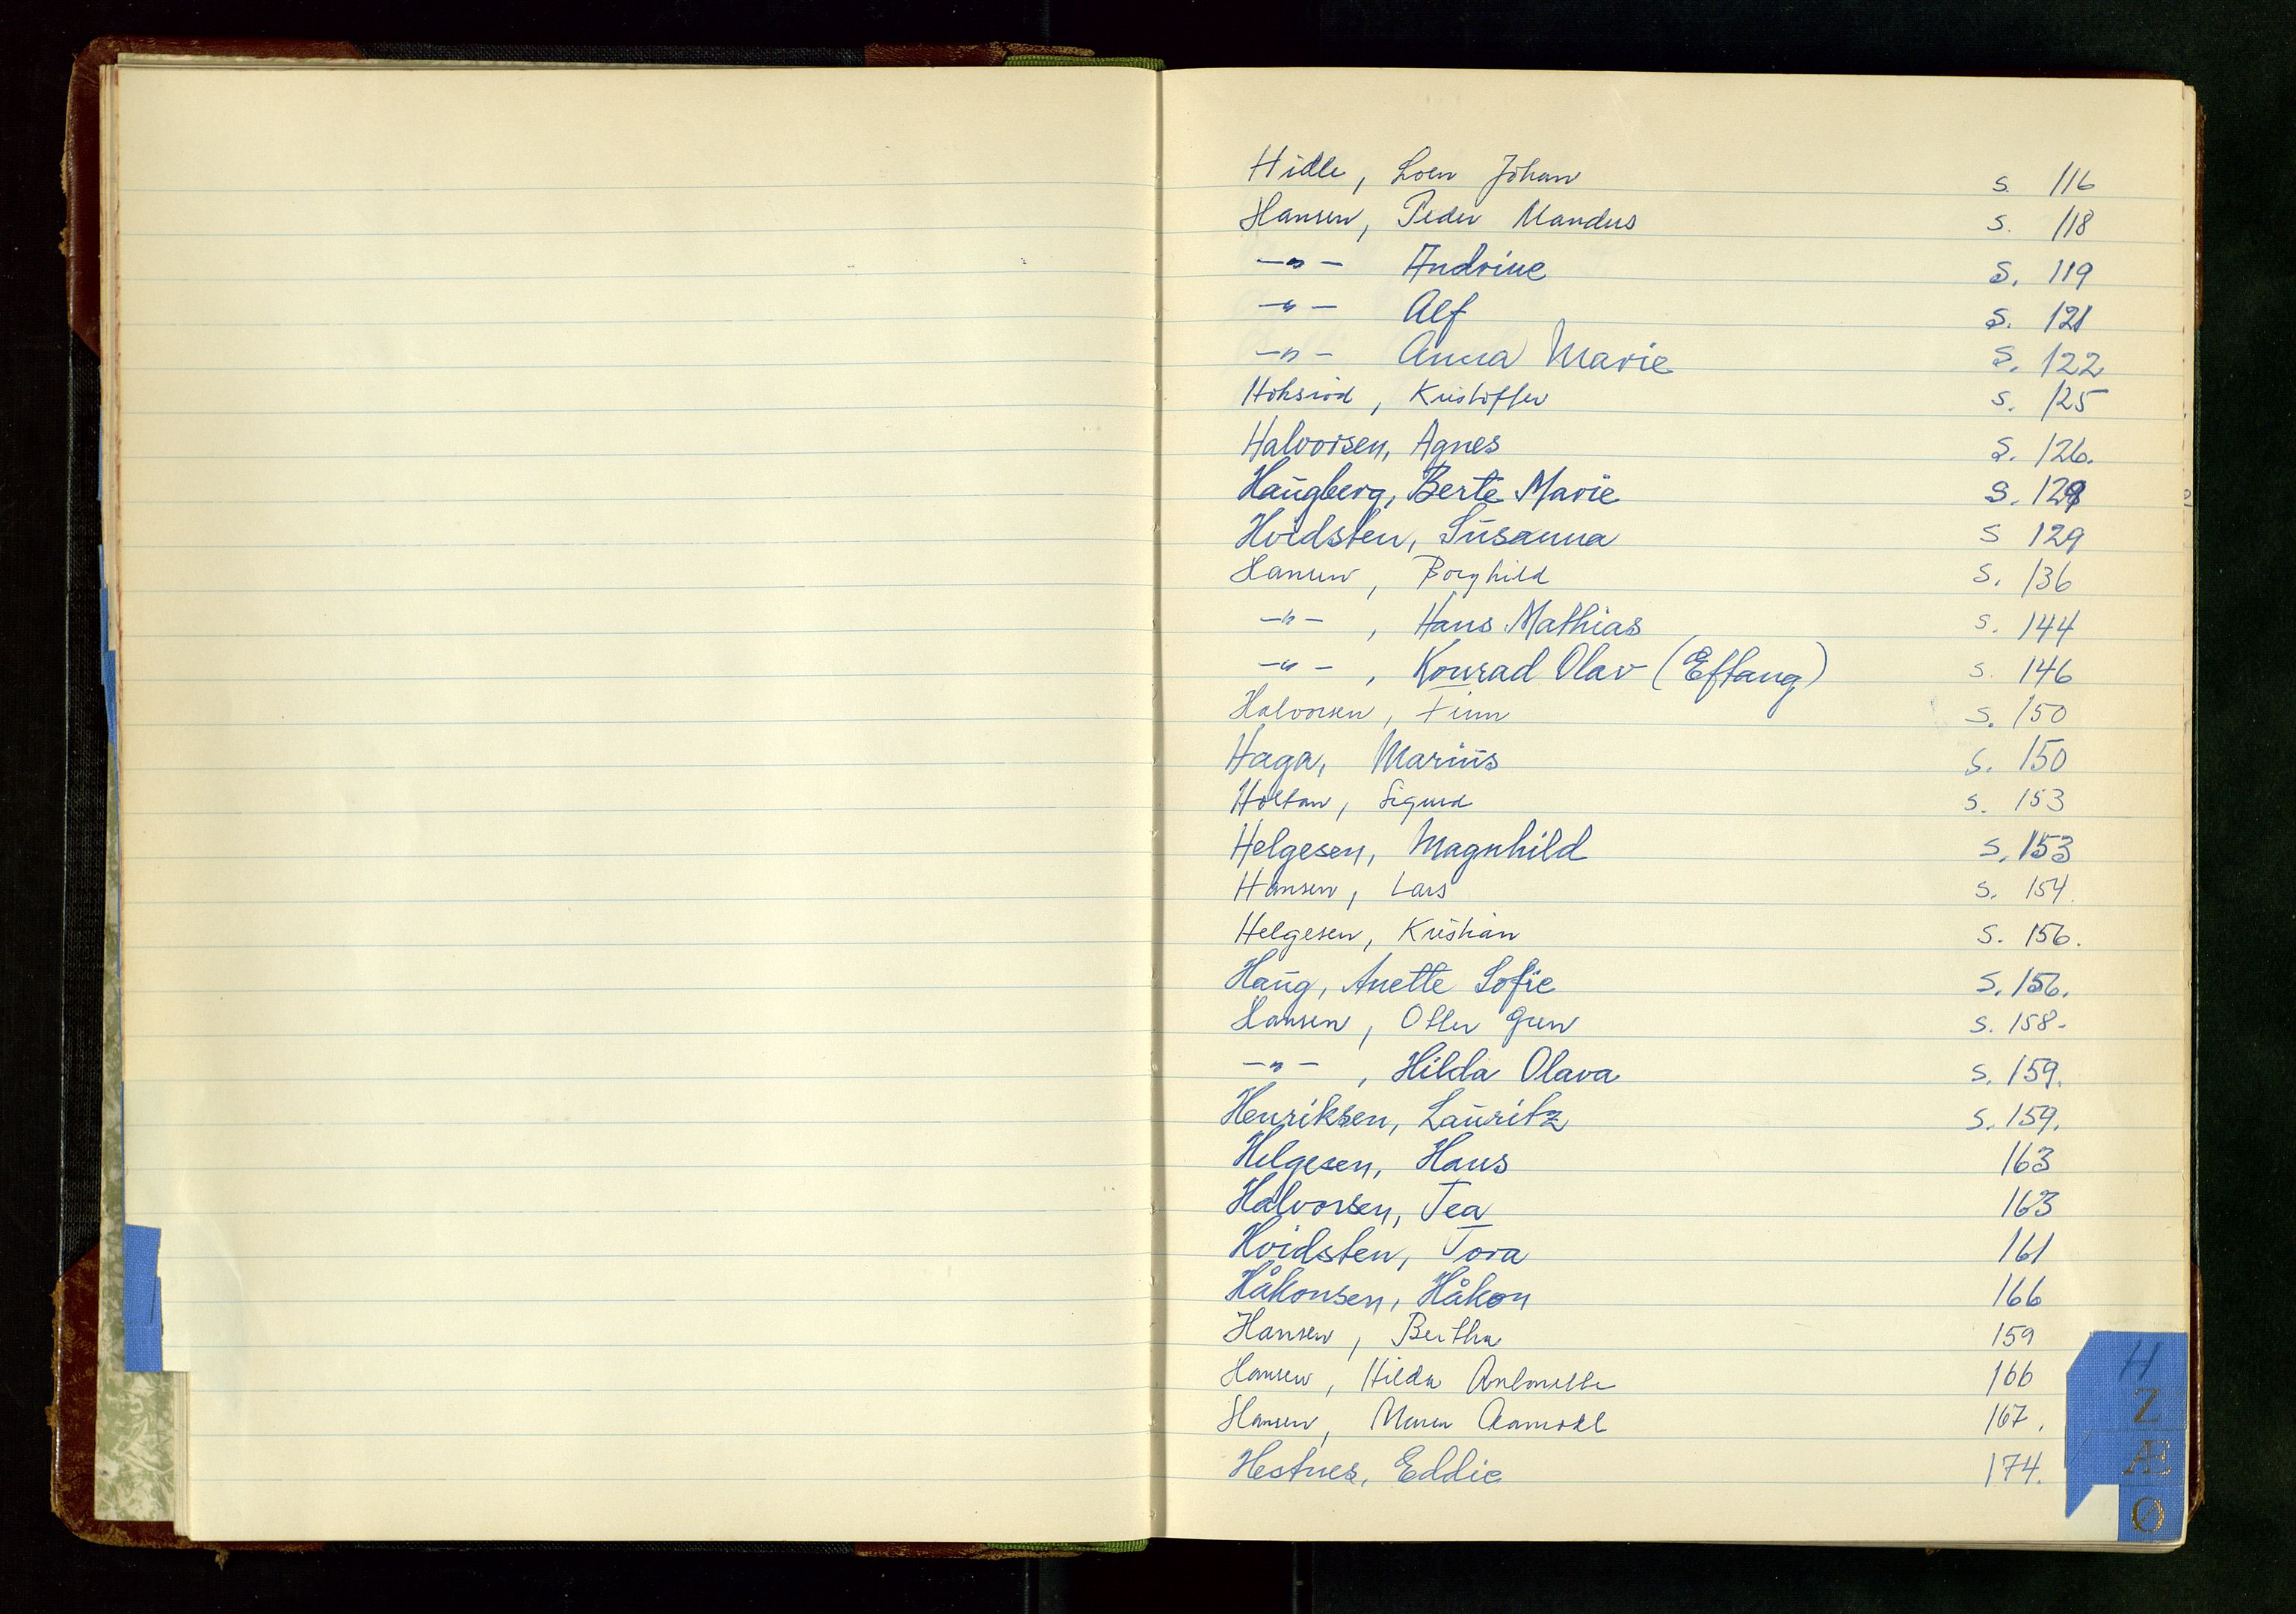 Hidle, Loen Johan s. 116
Hansen, Peder Mandus s. 118
—"— Andrine s. 119
—"— Alf s. 121
—"— Anna Marie s. 122
Kristoffer s. 125
Halvorsen, Agnes s. 126.
Haugberg, Berte Marie s. 129
Hvidsten, Susanna s 129
Hansen, Borghild s. 136
—"—, Hans Mathias s. 144
—"—, Konrad Olav (Eftang) s. 146
Halvorsen, Finn s. 150
Haga, Marius s. 150
Holtan, Sigurd s. 153
Helgesen, Magnhild s. 153
Hansen, Lars s. 154.
Helgesen, Kristian s. 156.
Haug, Anette Sofie s. 156.
Hansen, s. 158-
—"—, Hilda Olava s. 159.
Henriksen, Lauritz s. 159.
Helgesen, Hans 163
Halvorsen, Tea 163
Hvidsten, Tora 161
Håkonsen, Håkon 166
Hansen, Bertha 159
Hansen, Hilda 166
Hansen, Maren 167.
Hestnes, Eddie 174.
H
Z
Æ
Ø